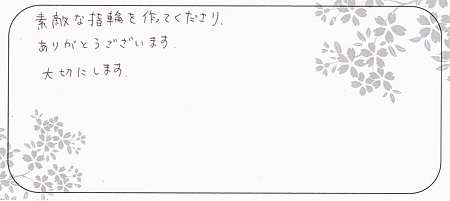 素敵な指輪を作ってくださり、
ありがとうございます。
大切にします。